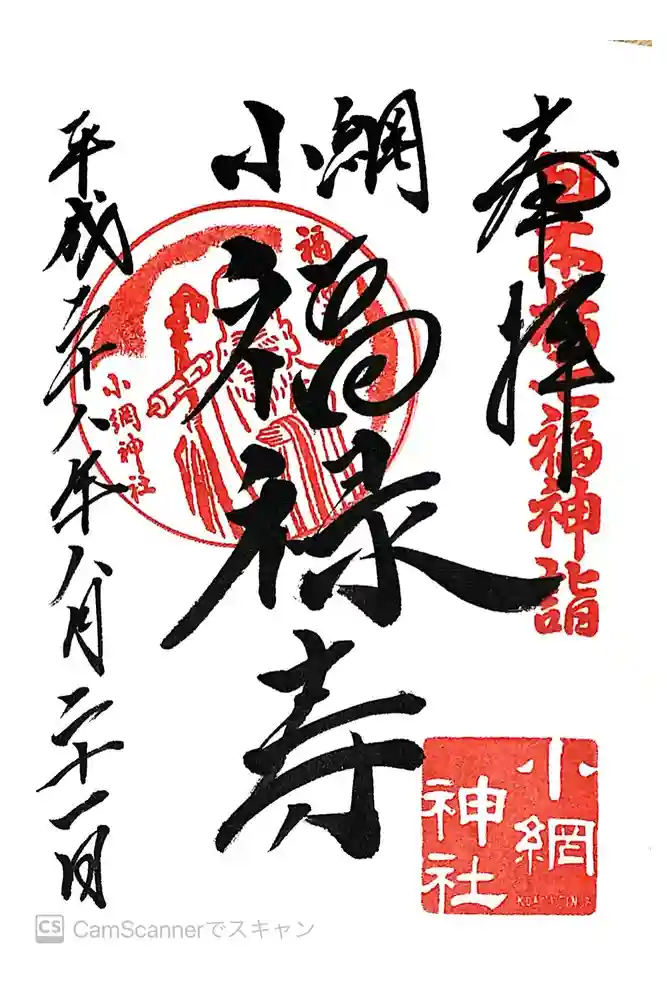 奉拝
日本橋七福神詣
小網
福禄寿
小網神社
平成二十八年八月二十一日
小網
神社
CS CamScannerでスキャン